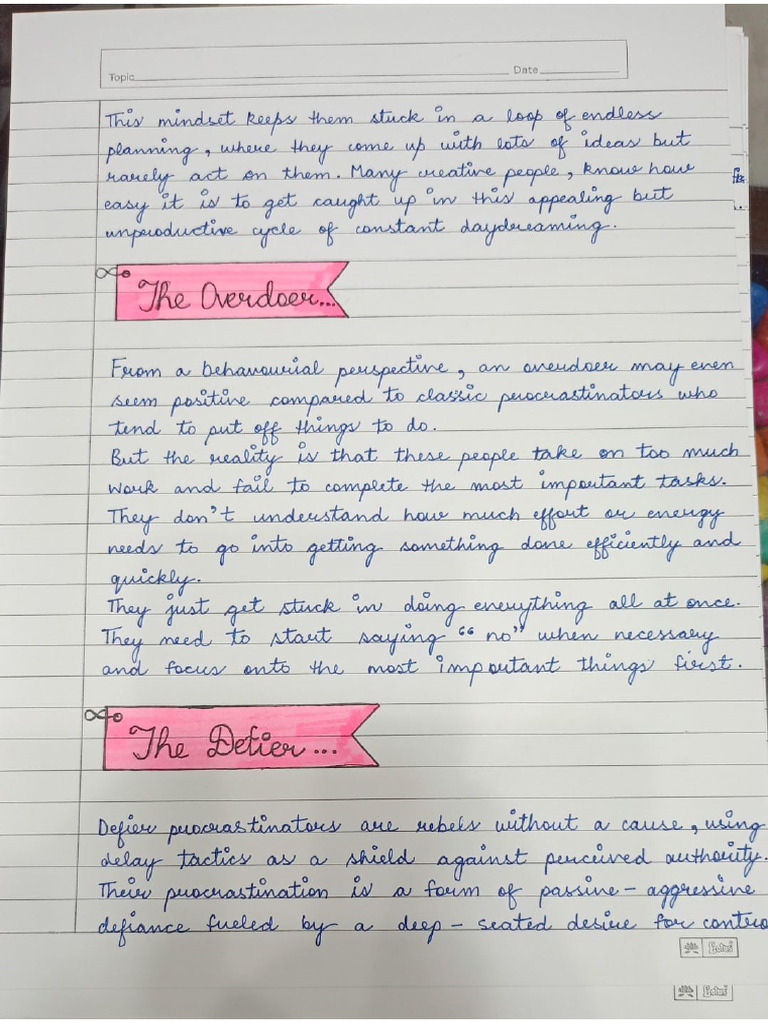 Topic Date
This mindset keeps them stuck in a loop of endless
planning, where they come up with lots of ideas but
rarely act on them. Many creative people, know how
easy it is to get caught up in this appealing but
unproductive cycle of constant daydreaming.
The Overdoer...
From a behavourial perspective, an overdoer may even
seem positive compared to classic procrastinators who
tend to put off things to do.
But the reality is that these people take on too much
work and fail to complete the most important tasks.
They don't understand how much effort or energy
needs to go into getting something done efficiently and
quickly.
They just get stuck in doing everything all at once.
They need to start saying "no" when necessary
and focus onto the most important things first.
The Defier...
Defier procrastinators are rebels without a cause, using
delay tactics as a shield against perceived authority.
Their procrastination is a form of passive-aggressive
defiance fueled by a deep-seated desire for contro